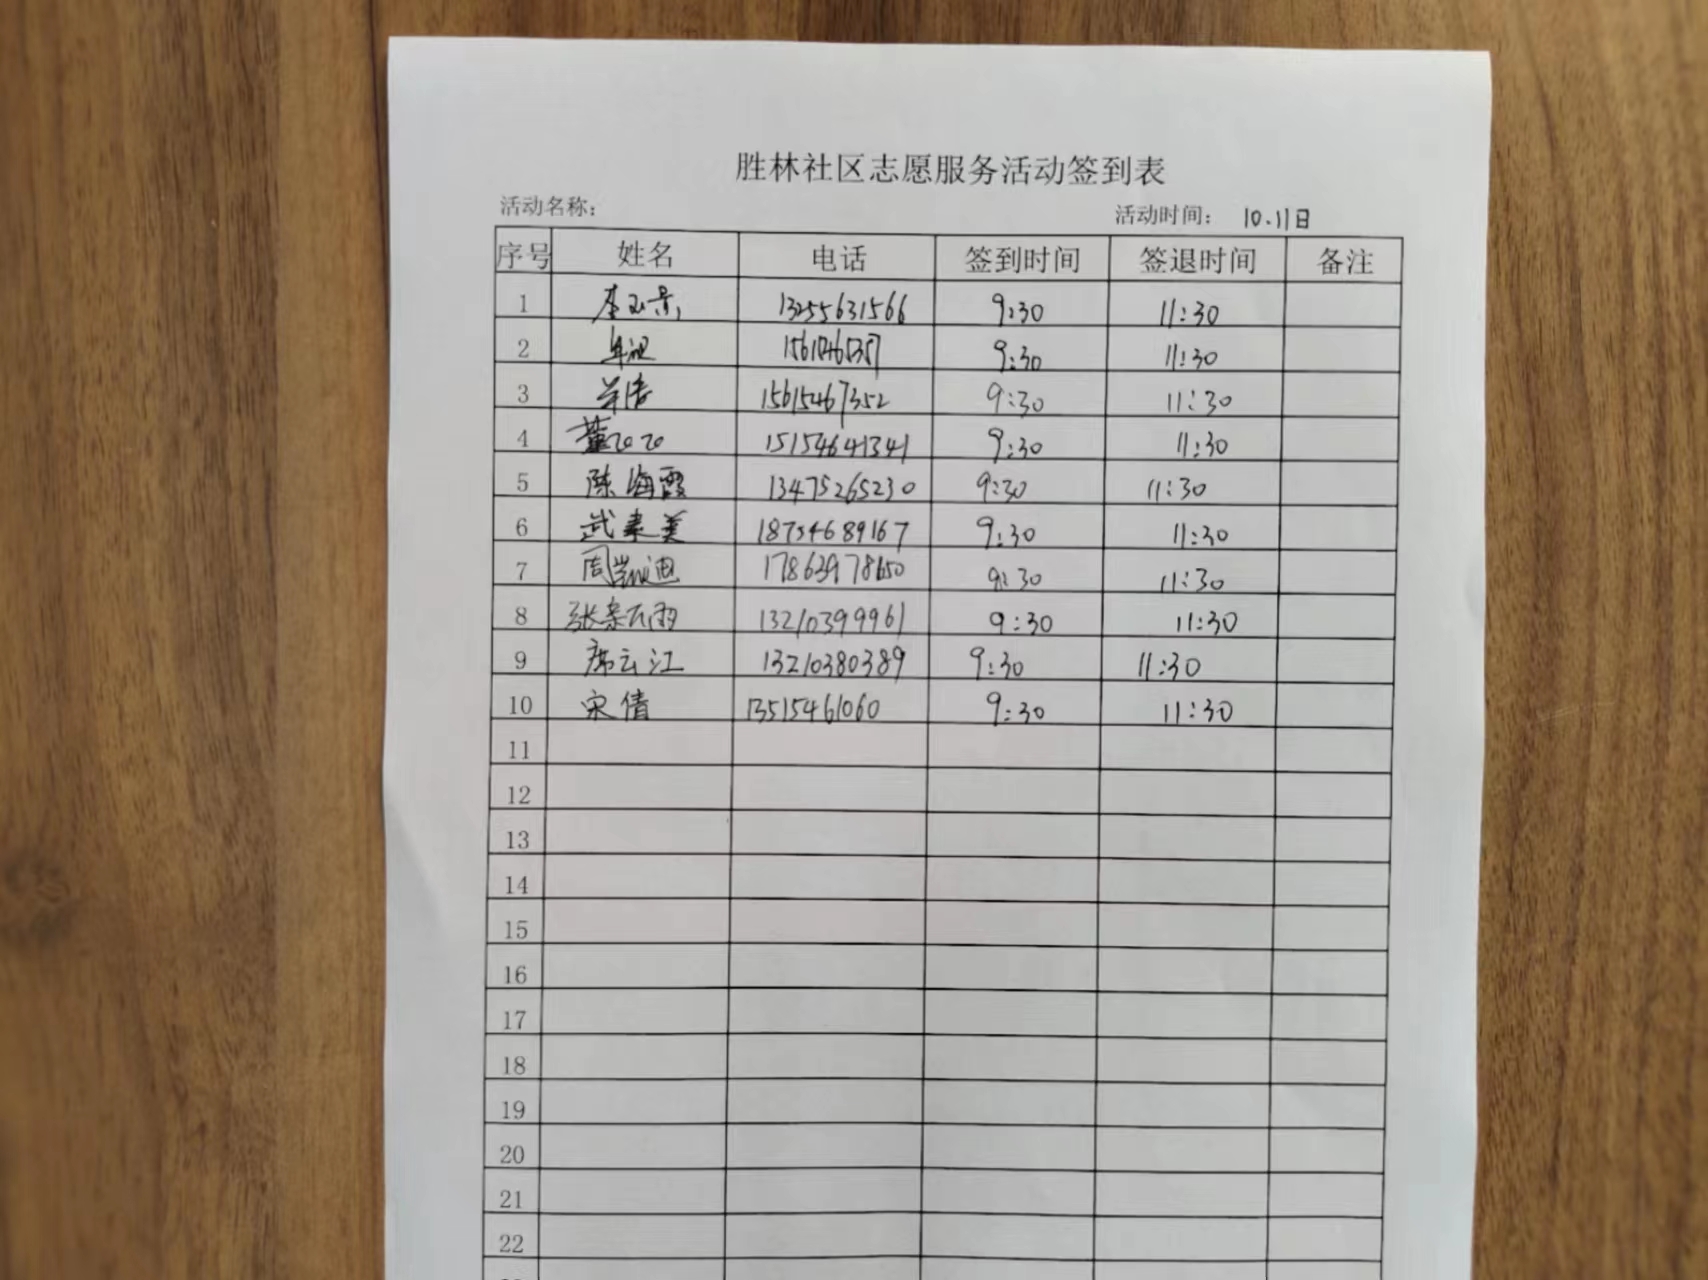 胜林社区志愿服务活动签到表
活动名称： 活动时间： 10.11日
序号 姓名 电话 签到时间 签退时间 备注
1 李玉景 13255631566 9:30 11:30
2 9:30 11:30
3 15615467352 9:30 11:30
4 董 15154641341 9:30 11:30
5 陈海霞 13475265230 9:30 11:30
6 武素美 18754689167 9:30 11:30
7 周凯迪 17863978650 9:30 11:30
8 张 雨 13210399961 9:30 11:30
9 席云江 13210380389 9:30 11:30
10 宋倩 13515461060 9:30 11:30
11
12
13
14
15
16
17
18
19
20
21
22